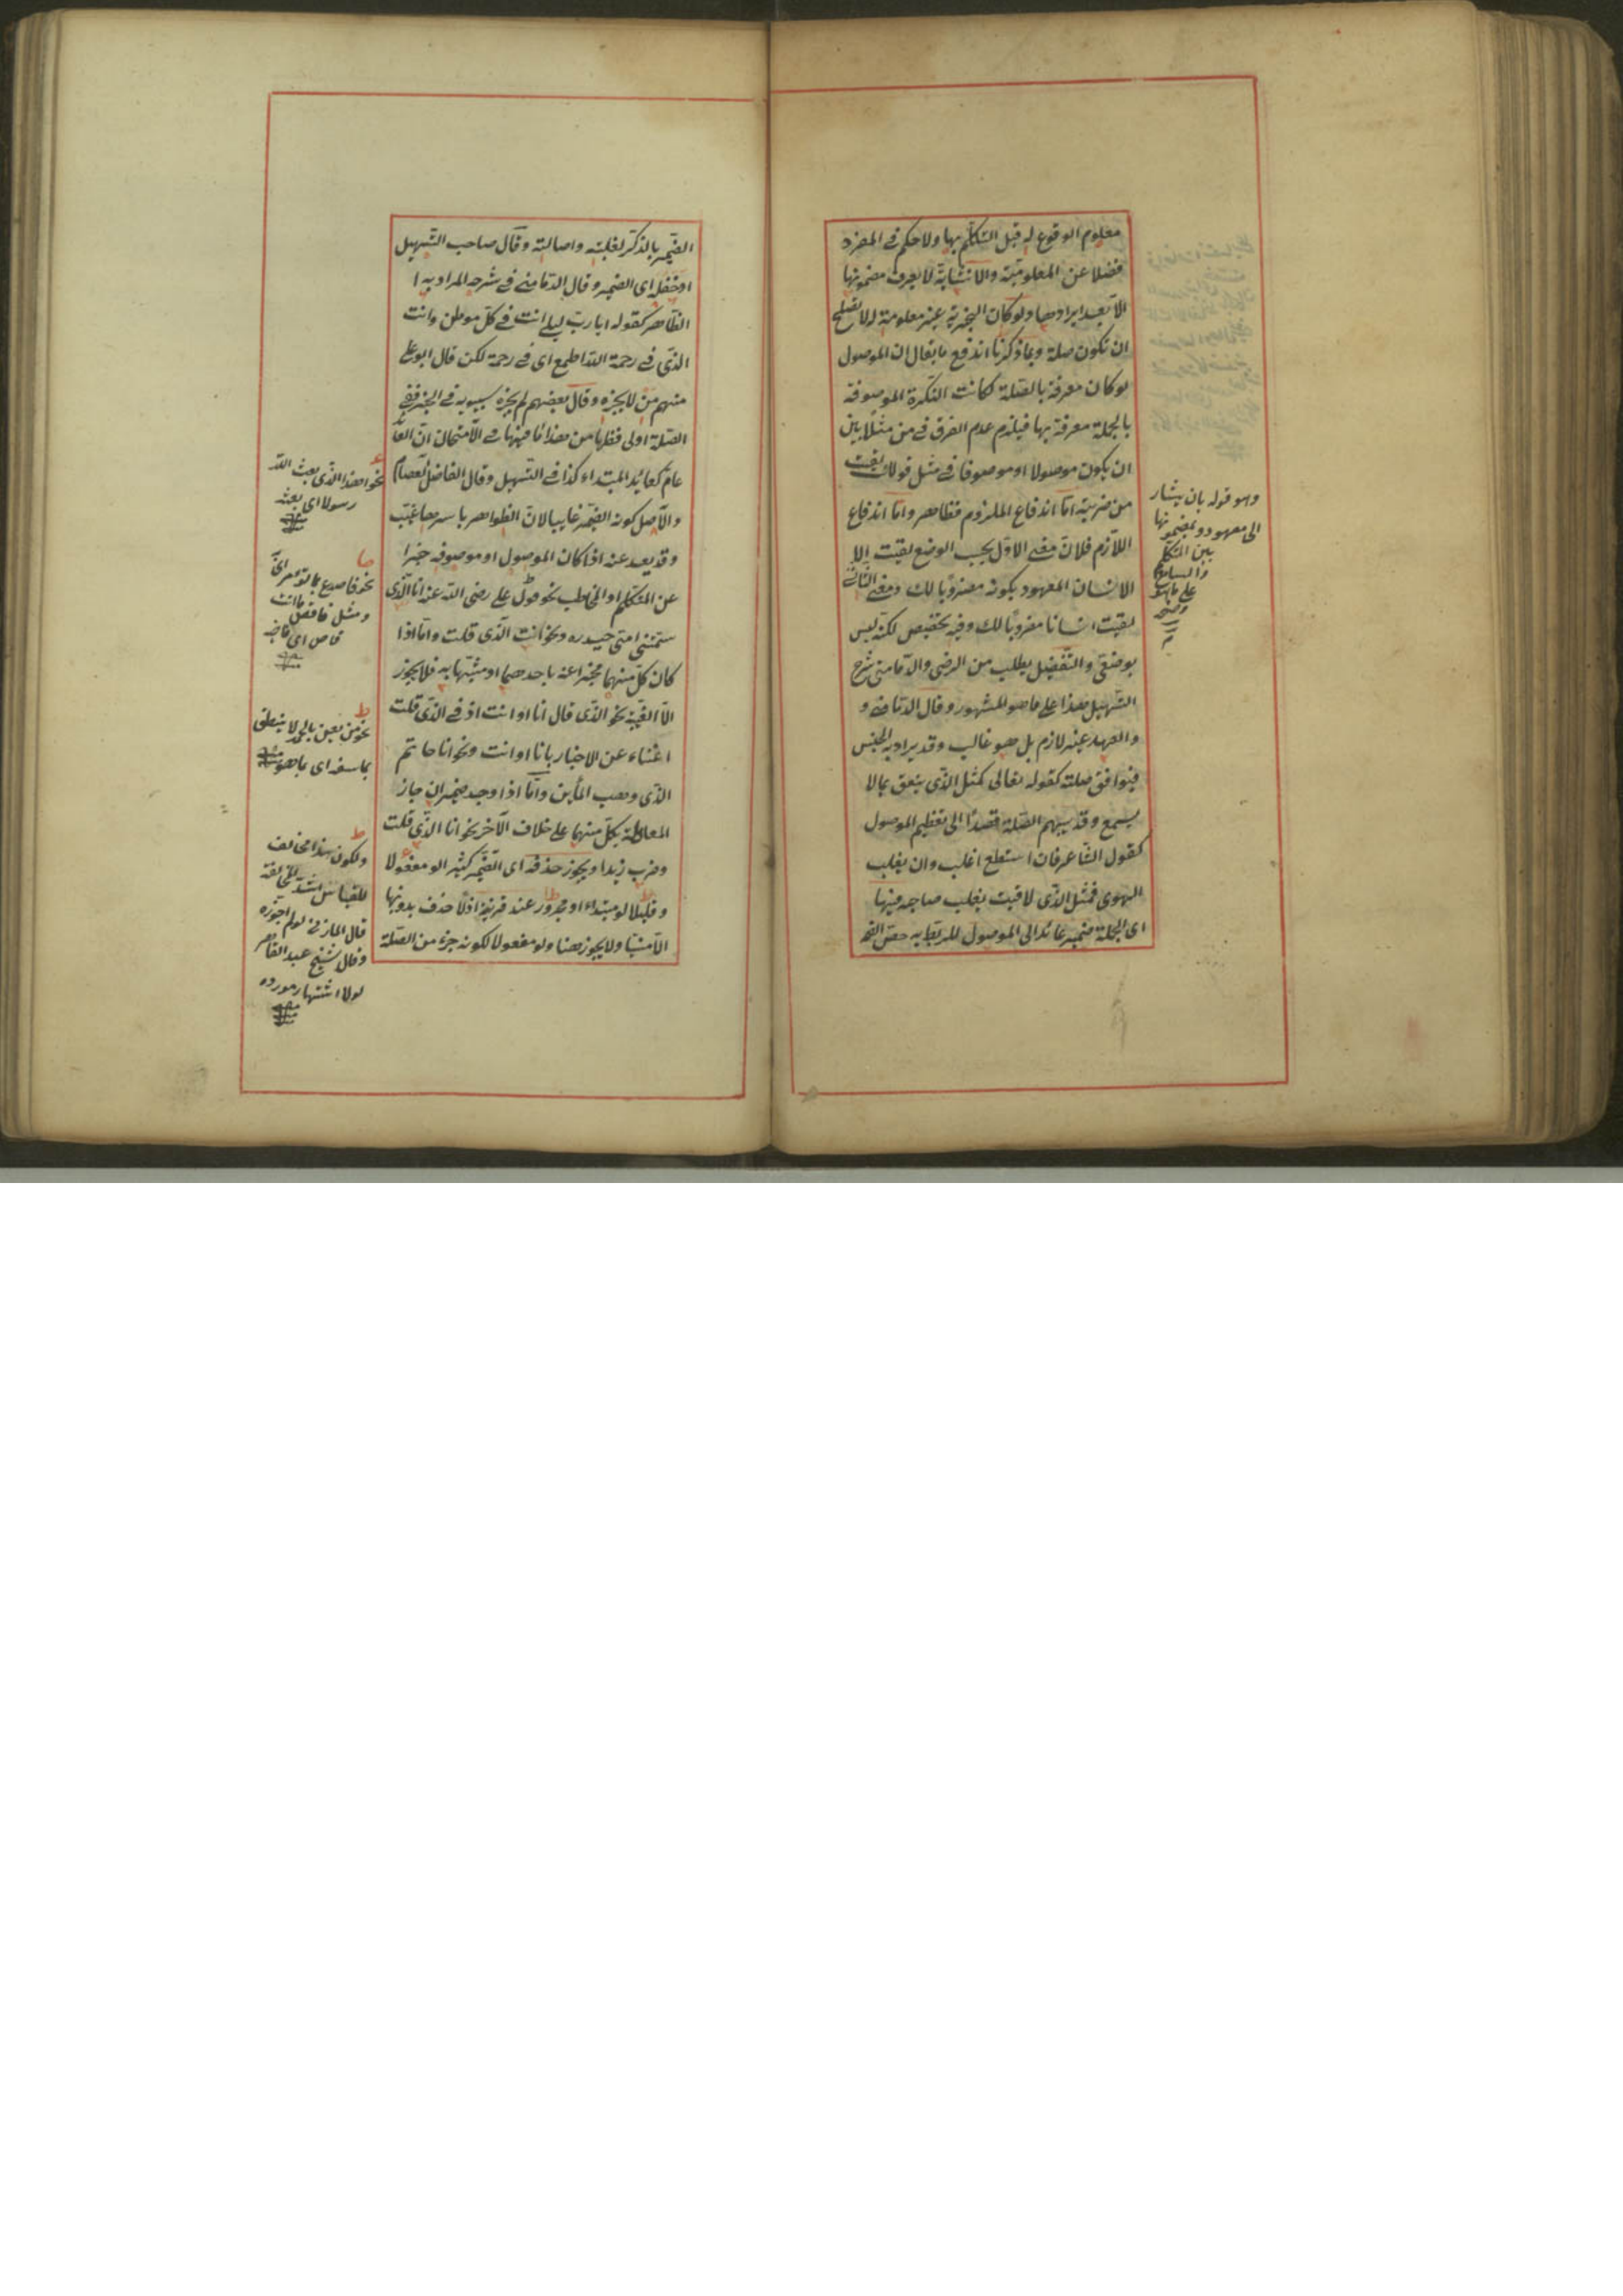 معلوم الوقوع له قبل التكلم بها ولا حكم في المفرد
فضلا عن المعلومية والانشائية لا يعرف مضمونها
الا بعد ايرادها ولو كان الخبرية غير معلومة لا تصلح
ان تكون صلة وبما ذكرنا اندفع ما يقال ان الموصول
لو كان معرفة بالصلة لكانت النكرة الموصوفة
بالجملة معرفة بها فيلزم عدم الفرق في من مثلا بين
ان يكون موصولا او موصوفا في مثل قولك لقيت
من ضربته اما اندفاع الملزوم فظاهر واما اندفاع
اللازم فلان معنى الاول بحسب الوضع لقيت
الانسان المعهود بكونه مضروبا لك ومعنى الثاني
لقيت انسانا مضروبا لك وفيه تخصيص لكنه ليس
بوضعي والتفصيل يطلب من الرضي والدماميني شرح
التسهيل هذا على ما هو المشهور وقال الدماميني و
والعهد غير لازم بل هو غالب وقد يراد به الجنس
فيوافق صلته كقوله تعالى كمثل الذي ينعق بما لا
يسمع وقد يبهم الصلة قصدًا الى تعظيم الموصول
كقول الشاعر فان استطع اغلب وان يغلب
الهوى فمثل الذي لاقيت يغلب صاحبه فيها
اى الجملة ضمير عائد الى الموصول للربط به خص
وهو قوله بان يشار
الى معهود بمضمونها
بين المتكلم
والسامع
على ما هو
الضمير بالذكر لغلبته واصالته وقال صاحب التسهيل
او خلفه اى الضمير وقال الدماميني في شرحه المراد به
الظاهر كقوله ايا رب ليلى انت في كل موطن وانت
الذي في رحمة الله اطمع اى في رحمته لكن قال ابو علي
منهم من لا يجيزه وقال بعضهم لم يجزه سيبويه في الخبر ففي
الصلة اولى فظهر من هذا ان في الامتحان ان العائد
عام كعائد المبتداء كذا في التسهيل وقال الفاضل العصام
والاصل كون الضمير غايبا لان الظواهر باسرها غيب
وقد يعدل عنه اذا كان الموصول او موصوفه خبرا
عن المتكلم او المخاطب نحو قول علي رضى الله عنه انا الذي
سمتني امي حيدره ونحو انت الذي قلت واما اذا
كان كل منهما مخبرا عنه باحدهما او مشبها به فلا يجوز
الا الغيبة نحو الذي قال انا او انت اذ في الذي قلت
اغناء عن الاخبار بانا او انت ونحو انا حاتم
الذي وهب المأين واما اذا وجد ضميران جاز
المعاملة بكل منهما على خلاف الاخر نحو انا الذي قلت
وضرب زيدا ويجوز حذفه اى الضمير كثير الو مفعولا
وقليلا لو مبتداء او مجرور عند قرينة اذ لا حذف بدونها
الا منسيا ولا يجوز هنا ولو مفعولا لكونه جزء من الصلة
نحو اهذا الذي بعث الله
رسولا اى بعثه
نحو فاصدع بما تؤمر اى
ومثل فاقض ما انت
قاض اى قاضيه
نحو من يعن بالحمد لا ينطق
بما سفه اى بما هو سفه
ولكون هذا مخالف
للقياس
قال المازني لو لم اجوزه
وقال شيخ عبد القاهر
لولا اشتهار مورده